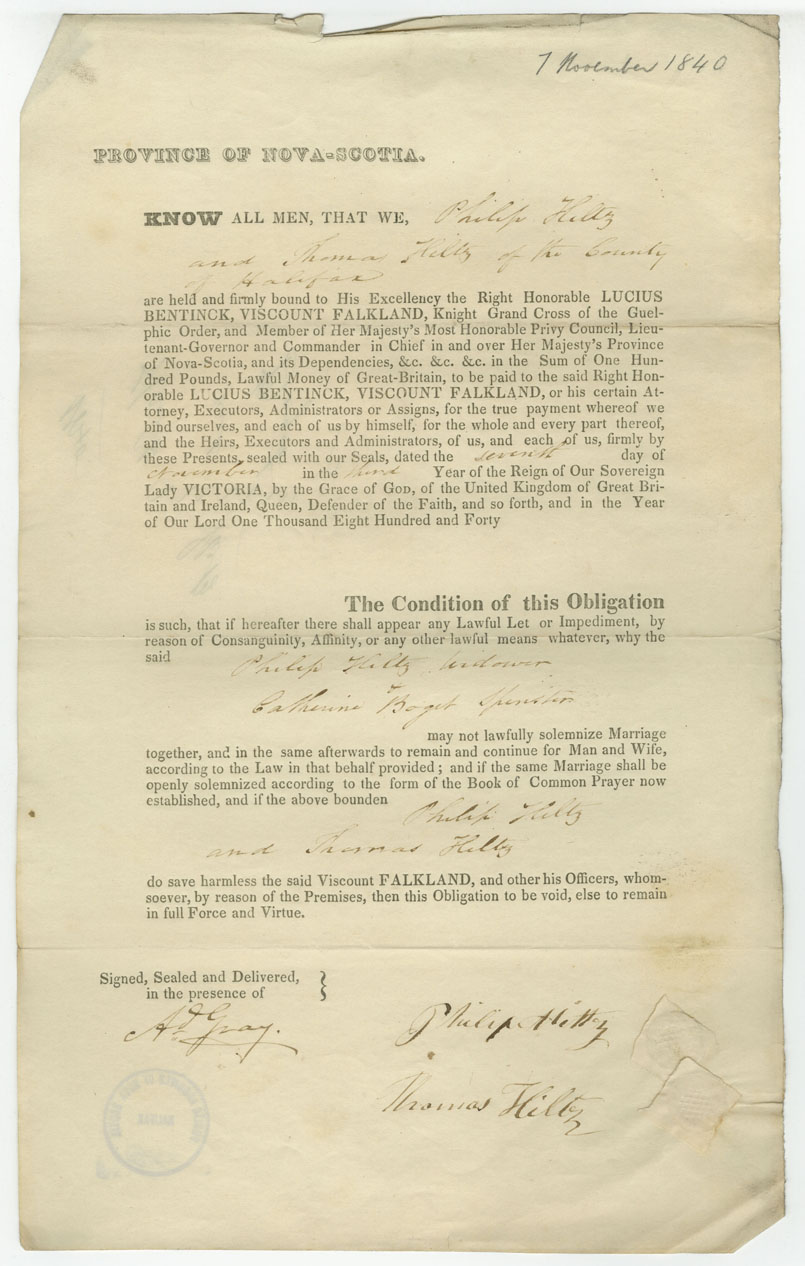 7 November 1840
PROVINCE OF NOVA-SCOTIA.
KNOW ALL MEN, THAT WE, Philip Hiltz
and Thomas Hiltz of the County
of Halifax
are held and firmly bound to His Excellency the Right Honorable LUCIUS
BENTINCK, VISCOUNT FALKLAND, Knight Grand Cross of the Guel-
phic Order, and Member of Her Majesty's Most Honorable Privy Council, Lieu-
tenant-Governor and Commander in Chief in and over Her Majesty's Province
of Nova-Scotia, and its Dependencies, &c. &c. &c. in the Sum of One Hun-
dred Pounds, Lawful Money of Great-Britain, to be paid to the said Right Hon-
orable LUCIUS BENTINCK, VISCOUNT FALKLAND, or his certain At-
torney, Executors, Administrators or Assigns, for the true payment whereof we
bind ourselves, and each of us by himself, for the whole and every part thereof,
and the Heirs, Executors and Administrators, of us, and each of us, firmly by
these Presents, sealed with our Seals, dated the seventh day of
November in the third Year of the Reign of Our Sovereign
Lady VICTORIA, by the Grace of GOD, of the United Kingdom of Great Bri-
tain and Ireland, Queen, Defender of the Faith, and so forth, and in the Year
of Our Lord One Thousand Eight Hundred and Forty
The Condition of this Obligation
is such, that if hereafter there shall appear any Lawful Let or Impediment, by
reason of Consanguinity, Affinity, or any other lawful means whatever, why the
said Philip Hiltz widower
Catherine Boget Spinster
may not lawfully solemnize Marriage
together, and in the same afterwards to remain and continue for Man and Wife,
according to the Law in that behalf provided; and if the same Marriage shall be
openly solemnized according to the form of the Book of Common Prayer now
established, and if the above bounden Philip Hiltz
and Thomas Hiltz
do save harmless the said Viscount FALKLAND, and other his Officers, whom-
soever, by reason of the Premises, then this Obligation to be void, else to remain
in full Force and Virtue.
Signed, Sealed and Delivered,
in the presence of
Ad Gray.
Philip Hiltz
Thomas Hiltz